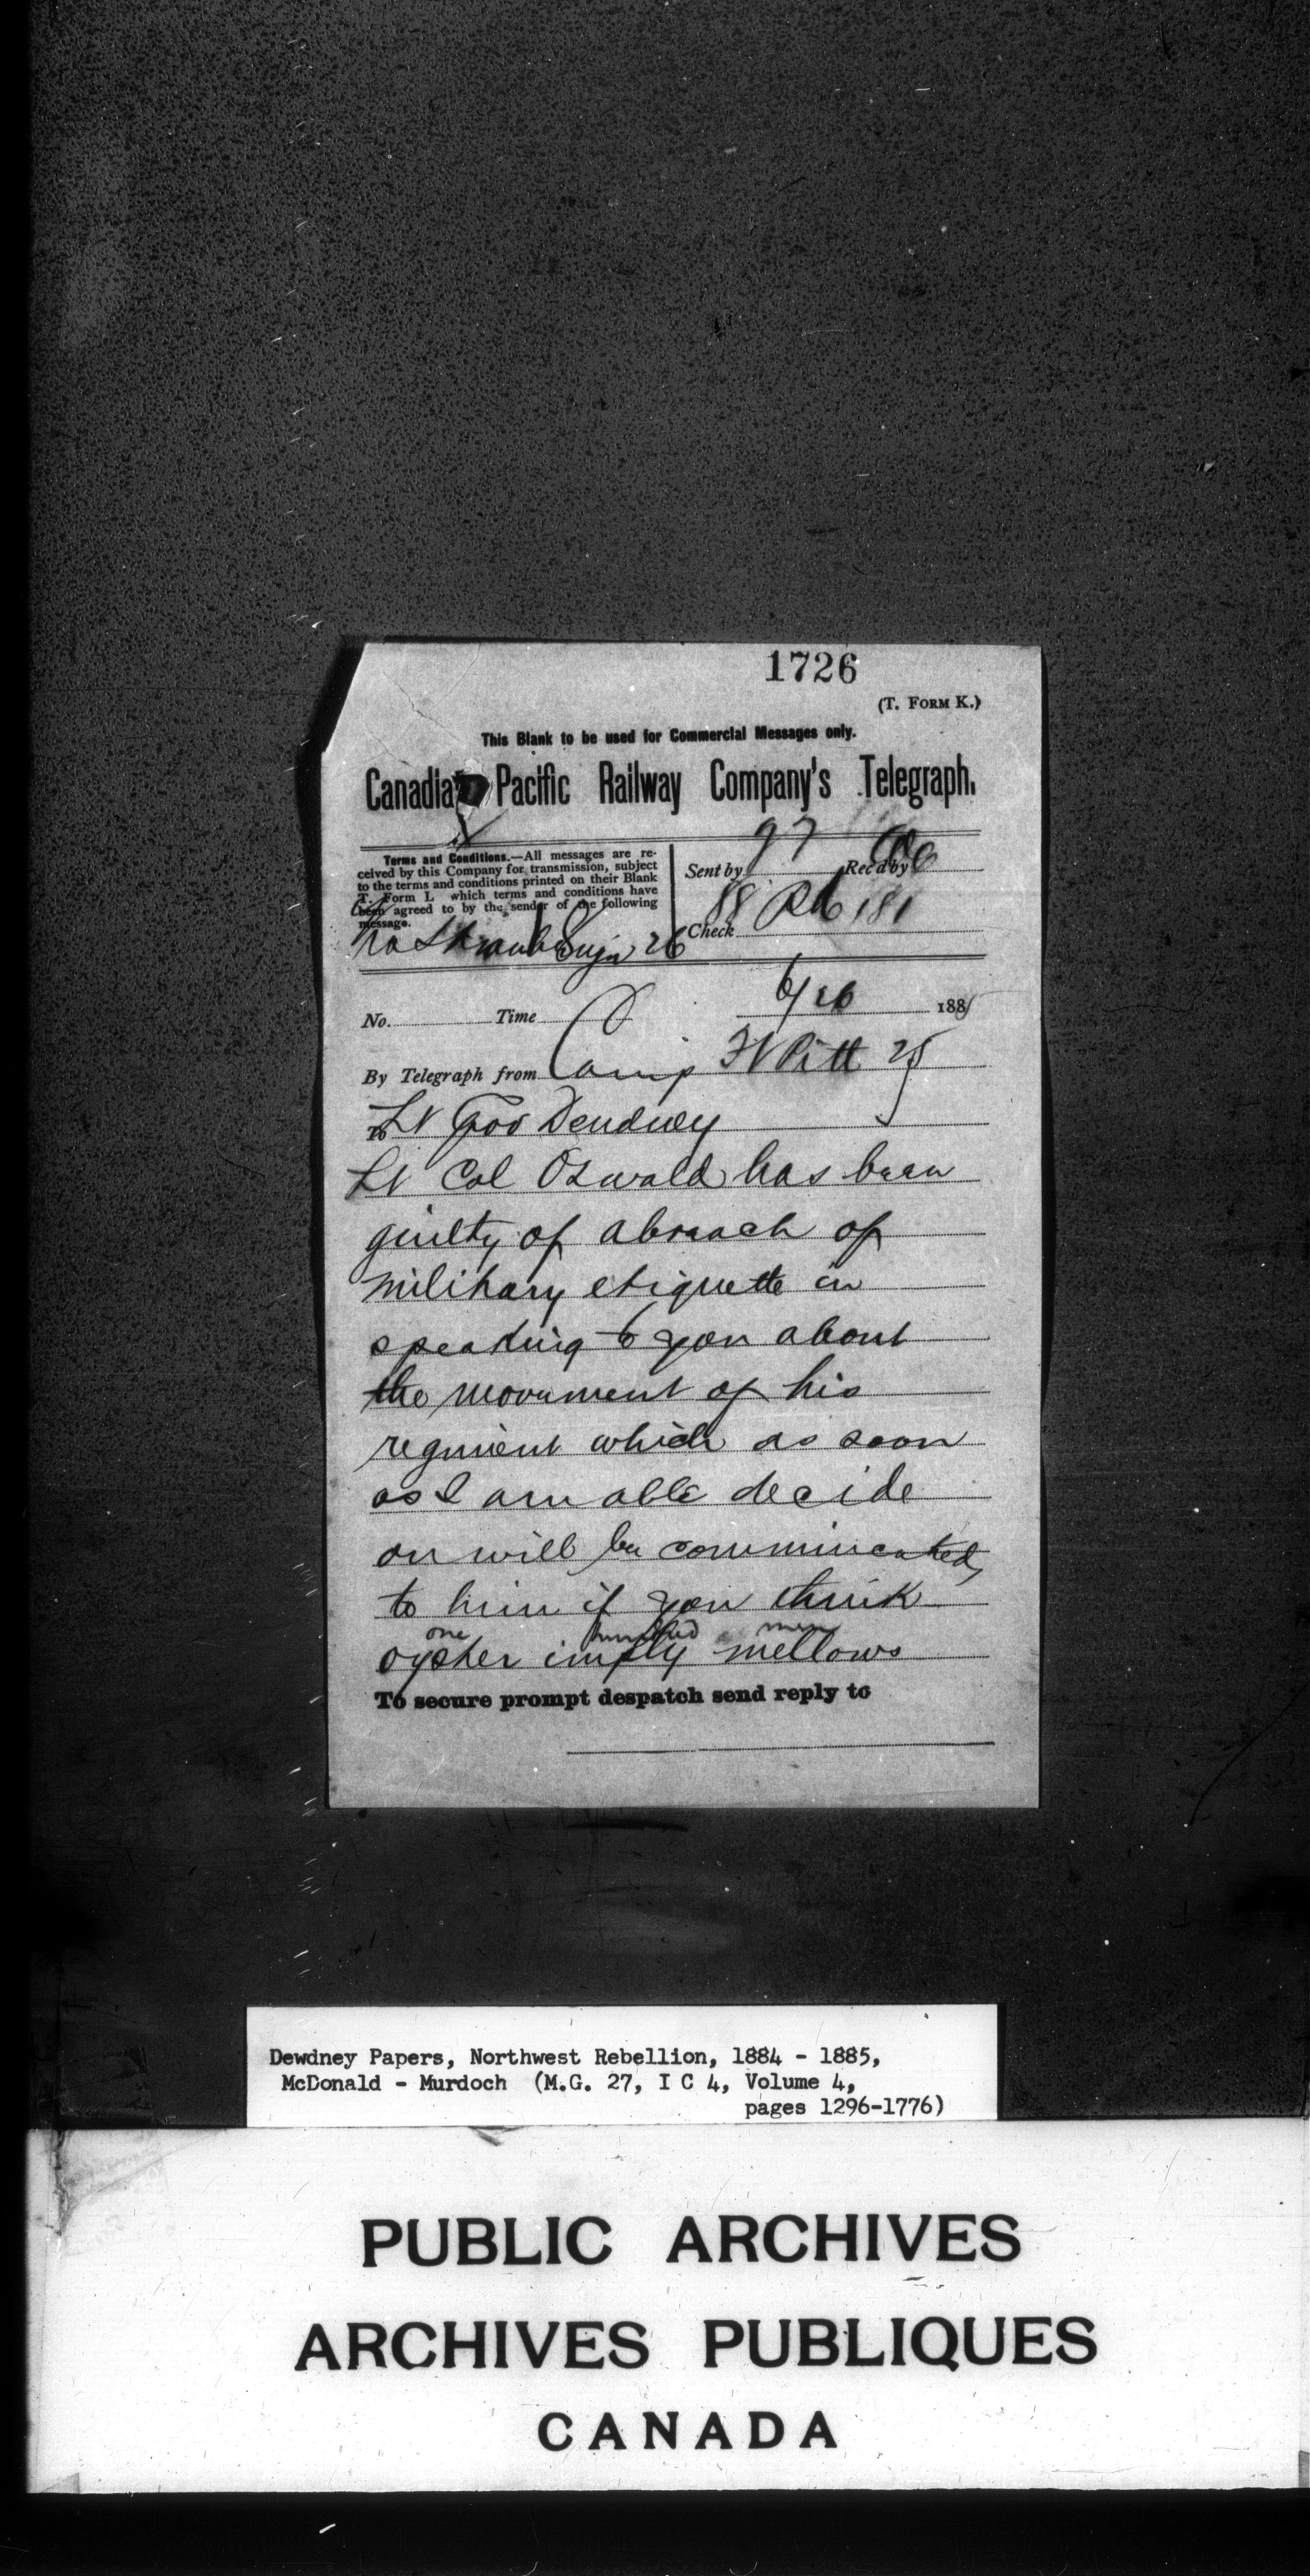 1726
(T. FORM K.)
This Blank to be used for Commercial Messages only.
Canadian Pacific Railway Company's Telegraph.
97
Terms and Conditions.—All messages are re-
ceived by this Company for transmission, subject
to the terms and conditions printed on their Blank
T. Form L which terms and conditions have
been agreed to by the sender of the following
message.
Sent by Rec'd by
88 181
Check
26
6/26 1885
No. Time
By Telegraph from Camp Ft Pitt 25
To Lt Gov Dewdney
Lt Col Oswald has been
guilty of abreach of
military etiquette in
speaking to you about
the movement of his
regiment which as soon
as I am able decide
on will be communicated
to him if you think
one hundred men
oyster imply mellows
To secure prompt despatch send reply to
Dewdney Papers, Northwest Rebellion, 1884 - 1885,
McDonald - Murdoch (M.G. 27, I C 4, Volume 4,
pages 1296-1776)
PUBLIC ARCHIVES
ARCHIVES PUBLIQUES
CANADA